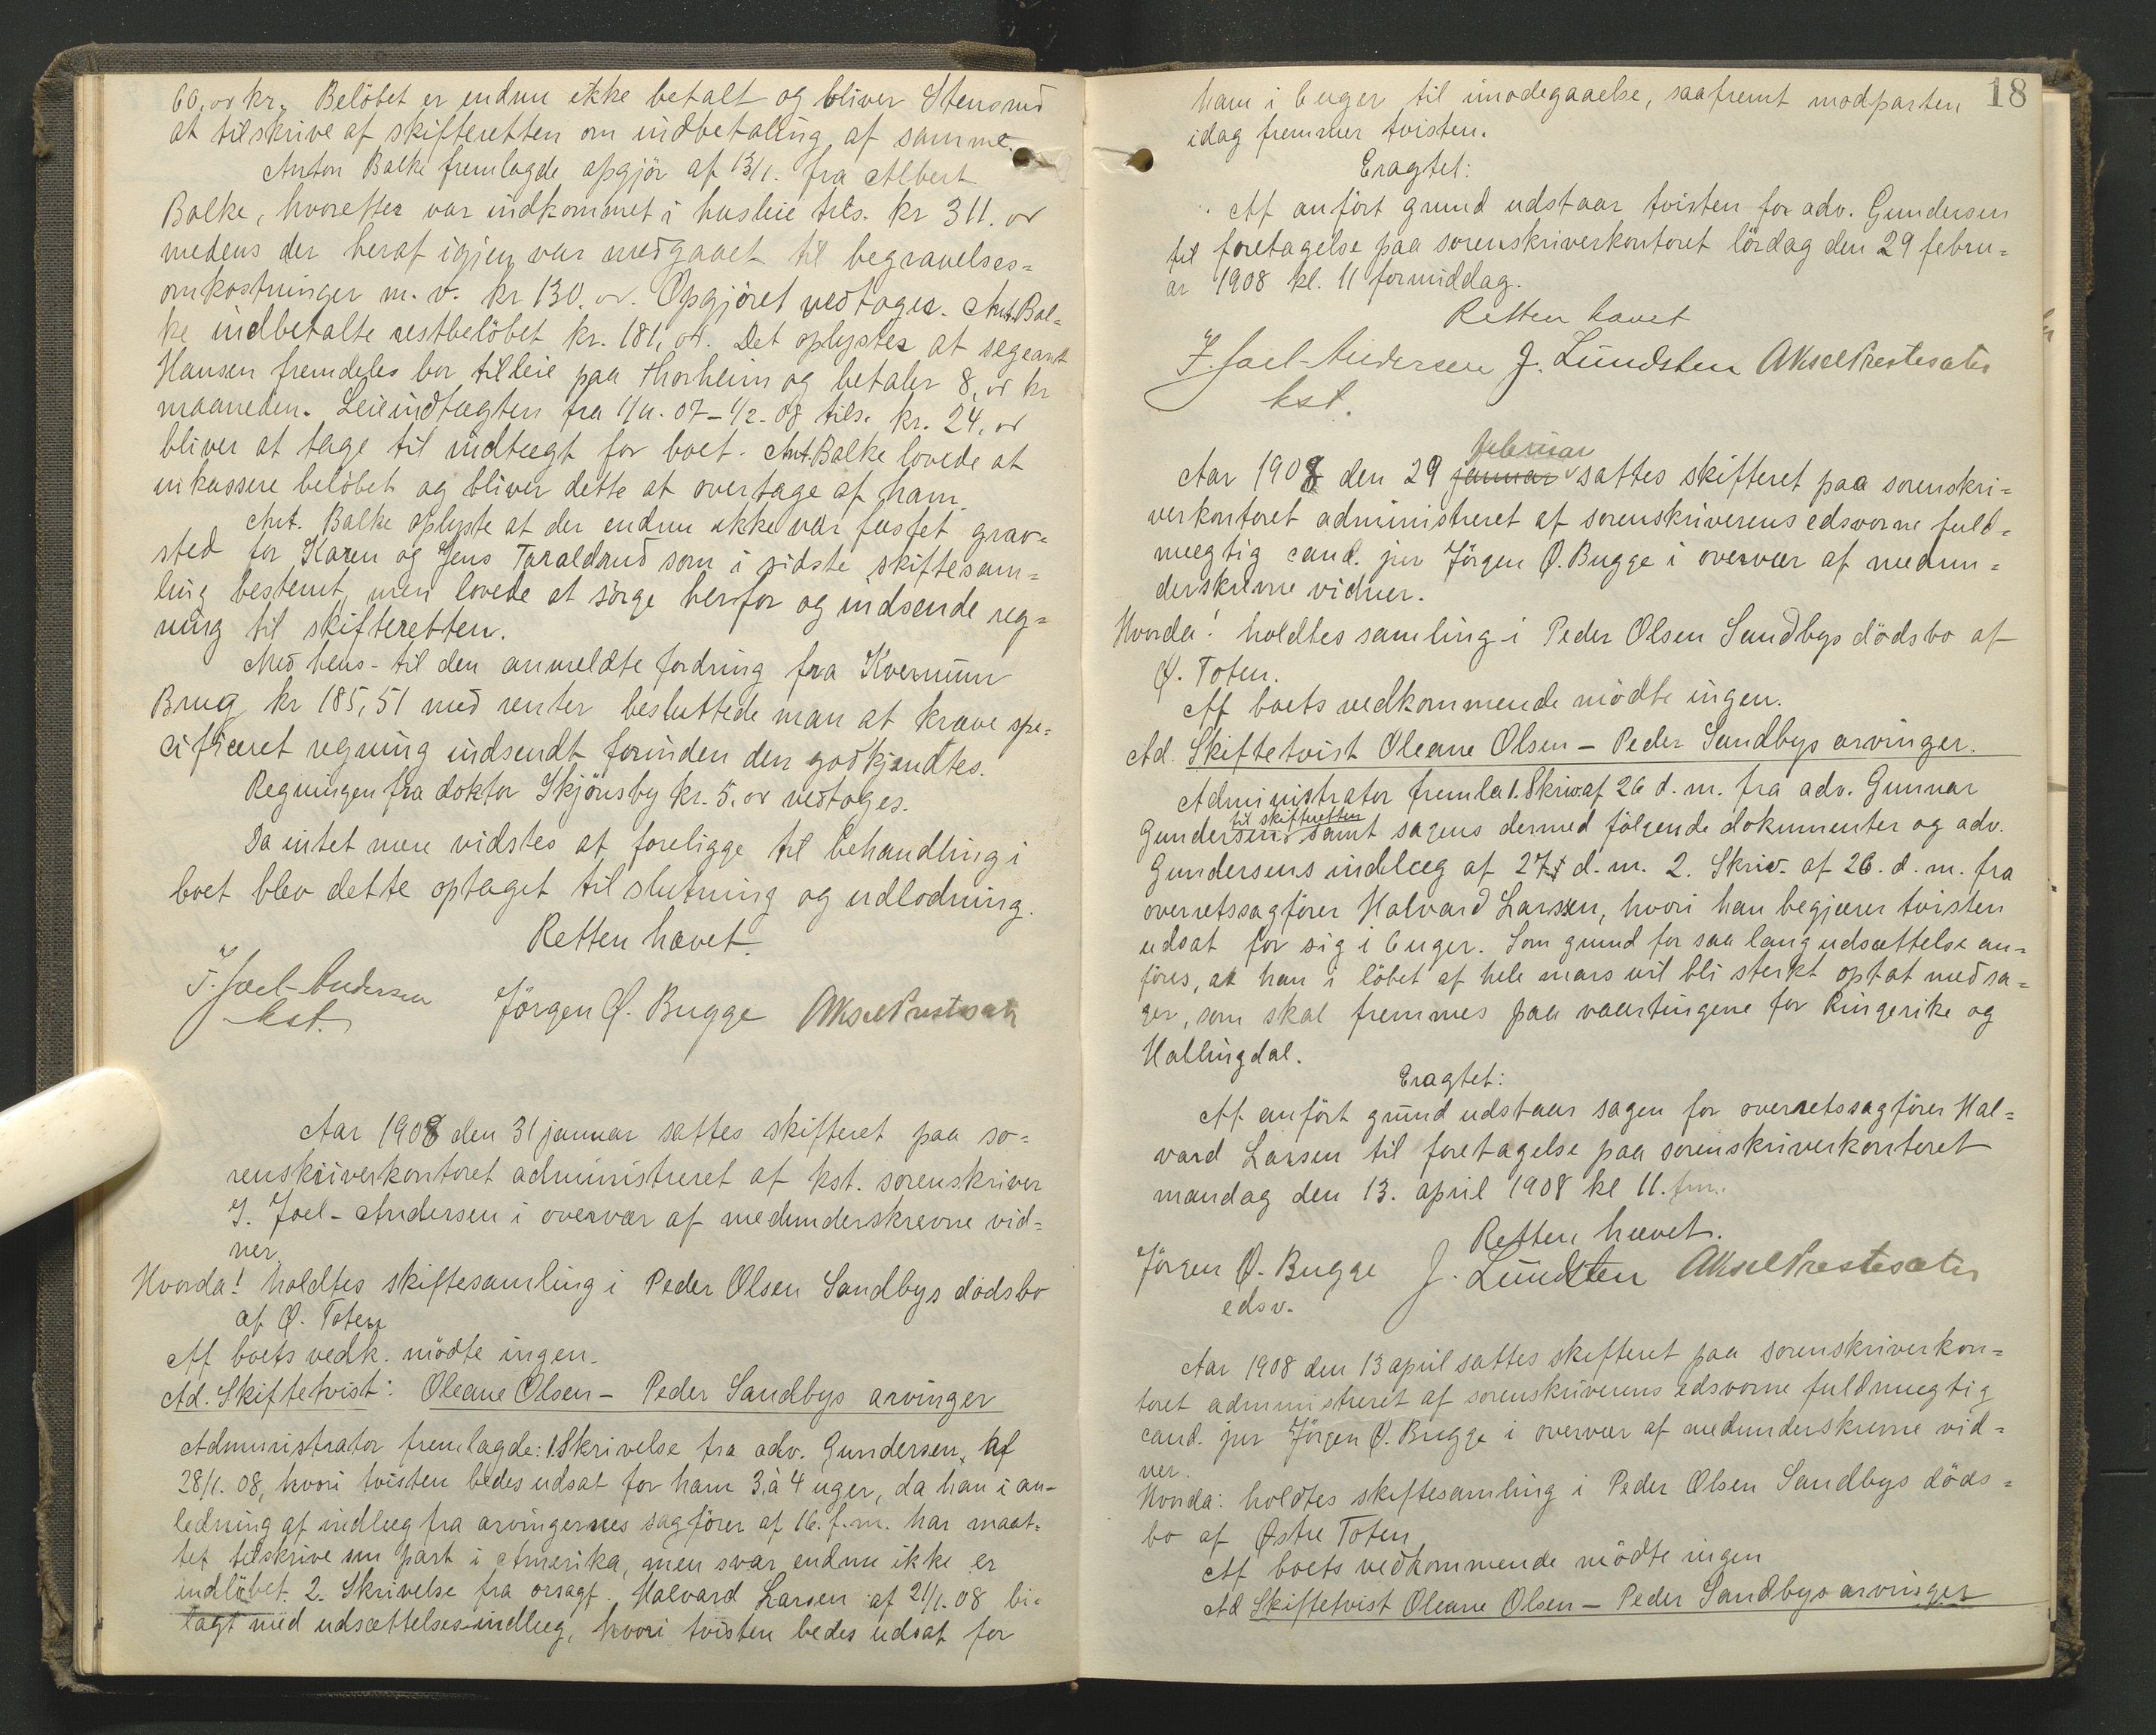 60, or kr. Belöbet er endnu ikke betalt og bliver Stensrud
at tilskrive af skifteretten om indbetaling af samme.
Anton Balke fremlagde opgjör af 13/1. fra Albert
Balke, hvorefter var indkommet i husleie tils. kr 311. or
medens der heraf igjen var medgaaet til begravelses=
omkostninger m. v. kr 130. or. Opgjöret vedtoges. Ant. Bal=
ke indbetalte restbelöbet kr. 181, or. Det oplystes at segeant
Hansen fremdeles bor tilleie paa Thorheim og betaler 8, or kr
maaneden. Leieindtægten fra 1/11. 07 – 1/2. 08 tils. kr. 24, or
bliver at tage til indtægt for boet. Ant. Balke lovede at
inkassere belöbet og bliver dette at overtage af ham.
Ant. Balke oplyste at der endnu ikke var fæstet grav=
sted for Karen og Jens Taraldsrud som i sidste skiftesam=
ling bestemt, men lovede at sörge herfor og indsende reg=
ning til skifteretten.
Med hens. til den anmeldte fordring fra Kvernum
Brug kr 185,51 med renter besluttede man at kræve spe=
cificeret regning indsendt forinden den godkjendtes.
Regningen fra doktor Skjönsby kr. 5. or vedtoges.
Da intet mere vidstes at foreligge til behandling i
boet blev dette optaget til slutning og udlodning.
Retten hævet.
J. Joel-Andersen
kst.
Jörgen Ø. Bugge
Aksel Prestesæter
Aar 1908 den 31 januar sattes skifteret paa so=
renskriverkontoret administreret af kst. sorenskriver
J. Joel-Andersen i overvær af medunderskrevne vid=
ner.
Hvorda! holdtes skiftesamling i Peder Olsen Sandbys dödsbo
af Ø. Toten
Af boets vedk. mödte ingen.
Ad. Skiftetvist: Oleane Olsen – Peder Sandbys arvinger
Administrator fremlagde: 1 Skrivelse fra adv. Gundersen, af
28/1. 08, hvori tvisten bedes udsat for ham 3 à 4 uger, da han i an-
ledning af indlæg fra arvingernes sagförer af 16. f. m. har maat=
tet tilskrive sin part i Amerika, men svar endnu ikke er
indlöbet. 2. Skrivelse fra orsagf. Halvard Larsen af 21/1. 08 bi=
lagt med udsættelsesindlæg, hvori tvisten bedes udsat for
18
ham i 6 uger til imodegaaelse, saafremt modparten
idag fremmer tvisten.
Eragtet:
Af anfört grund udstaar tvisten for adv. Gundersen
til foretagelse paa sorenskriverkontoret lördag den 29 febru=
ar 1908 kl. 11 formiddag.
Retten hævet
J. Joel-Andersen J. Lundsten Aksel Prestesæter
kst.
februar
Aar 1908 den 29 januar sattes skifteret paa sorenskri=
verkontoret administreret af sorenskriverens edsvorne fuld=
mægtig cand. jur Jörgen Ø. Bugge i overvær af medun=
derskrevne vidner.
Hvorda! holdtes samling i Peder Olsen Sandbys dödsbo af
Ø. Toten.
Af boets vedkommende mödte ingen.
Ad. Skiftetvist Oleane Olsen – Peder Sandbys arvinger.
Administrator fremla 1. Skriv. af 26 d. m. fra adv. Gunnar
til skifteretten
Gundersen samt sagens dermed fölgende dokumenter og adv.
Gundersens indlæg af 27 d. m. 2. Skriv. af 26. d. m. fra
overretssagförer Halvard Larssen, hvori han begjærer tvisten
udsat for sig i 6 uger. Som grund for saa lang udsættelse an=
föres, at han i löbet af hele mars vil bli sterkt optat med sa=
ger, som skal fremmes paa vaartingene for Ringerike og
Hallingdal.
Eragtet:
Af anfört grund udstaar sagen for overretssagförer Hal=
vard Larsen til foretagelse paa sorenskriverkontoret
mandag den 13. april 1908 kl 11. fm.
Retten hævet.
Jörgen Ø. Bugge J. Lundsten Aksel Prestesæter
edsv.
Aar 1908 den 13 april sattes skifteret paa sorenskriverkon=
toret administreret af sorenskriverens edsvorne fuldmægtig
cand. jur Jörgen Ø. Bugge i overvær af medunderskrevne vid=
ner.
Hvorda: holdtes skiftesamling i Peder Olsen Sandbys döds=
bo af Østre Toten
Af boets vedkommende mödte ingen
Ad Skiftetvist Oleane Olsen – Peder Sandbys arvinger